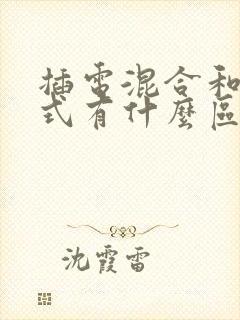 插電混合和
式有什麼區
沈霞雷